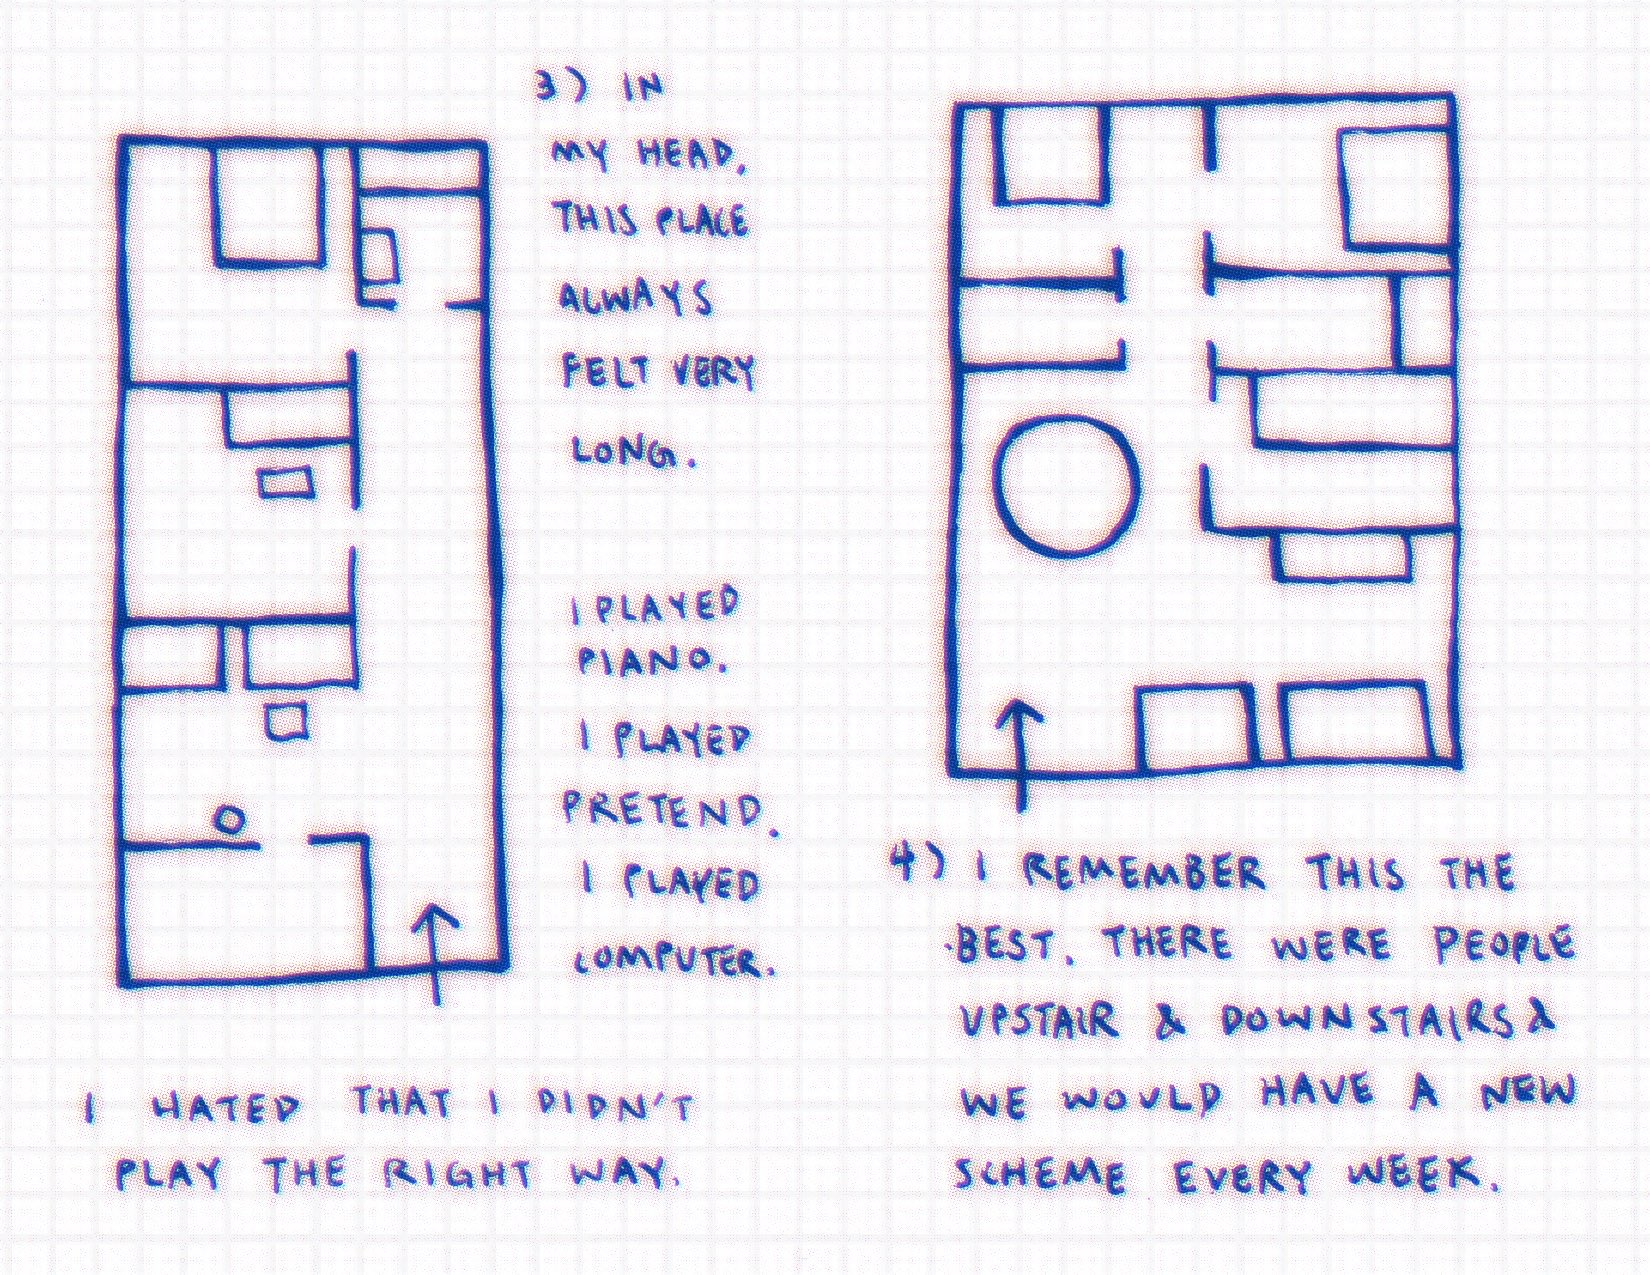 3) IN
MY HEAD,
THIS PLACE
ALWAYS
FELT VERY
LONG.
I PLAYED
PIANO.
I PLAYED
PRETEND.
I PLAYED
COMPUTER.
I HATED THAT I DIDN'T
PLAY THE RIGHT WAY.
4) I REMEMBER THIS THE
BEST. THERE WERE PEOPLE
UPSTAIR & DOWNSTAIRS &
WE WOULD HAVE A NEW
SCHEME EVERY WEEK.